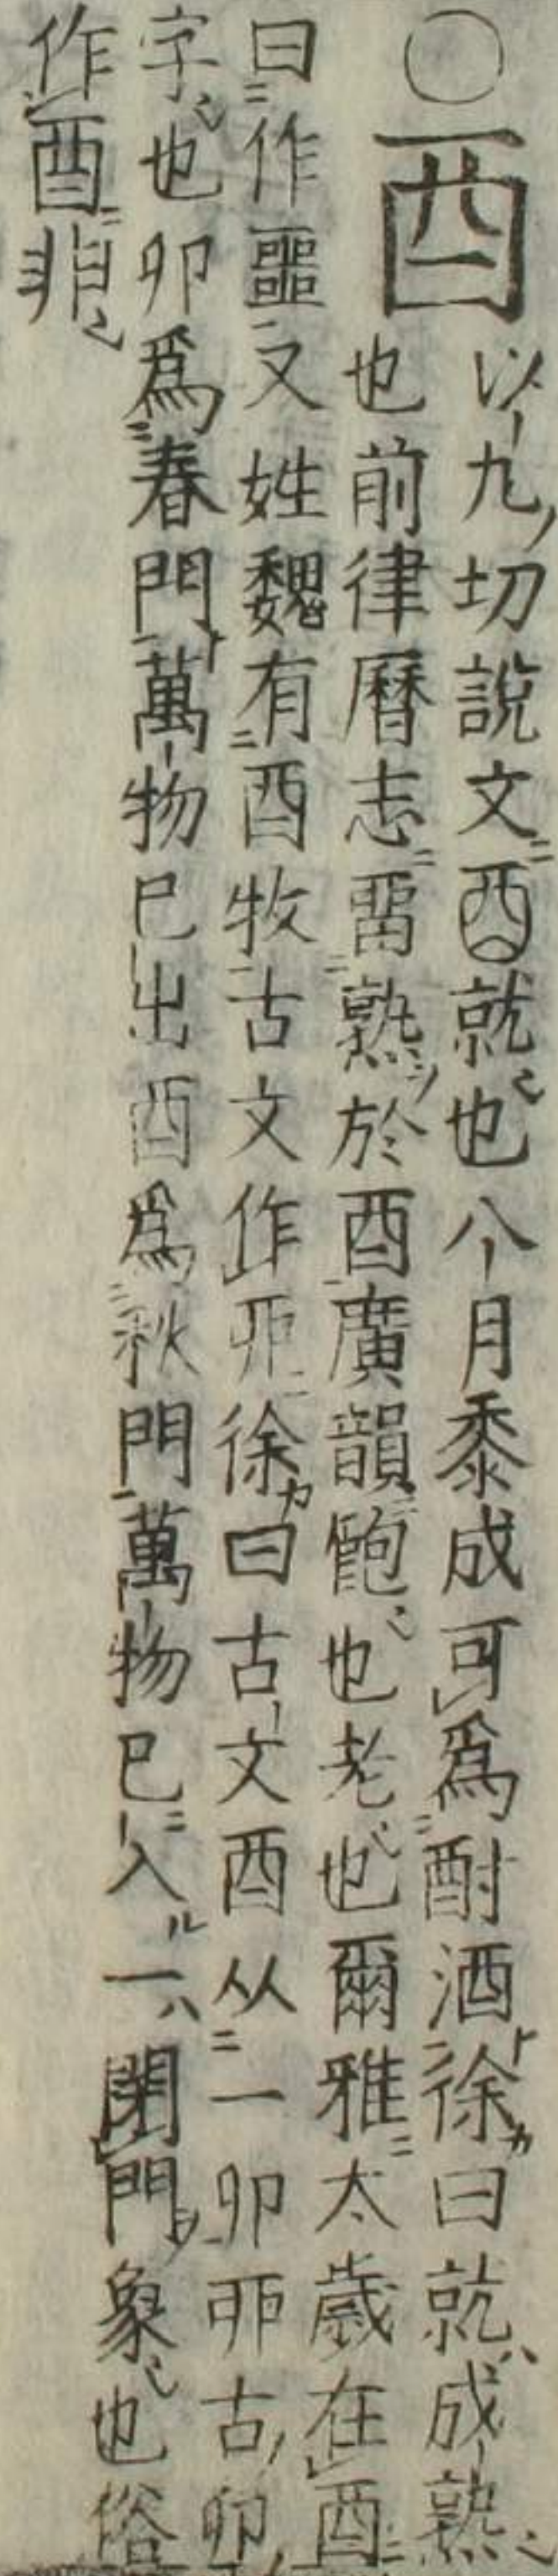 〇酉
以九切說文酉就也八月黍成可爲酎酒徐曰就成熟
也前律曆志畱熟於酉廣韻飽也老也爾雅太歲在酉
曰作噩又姓魏有酉牧古文作丣徐曰古文酉从一卯丣古卯
字也卯爲春門萬物已出酉爲秋門萬物已入一閉門象也俗
作酉非